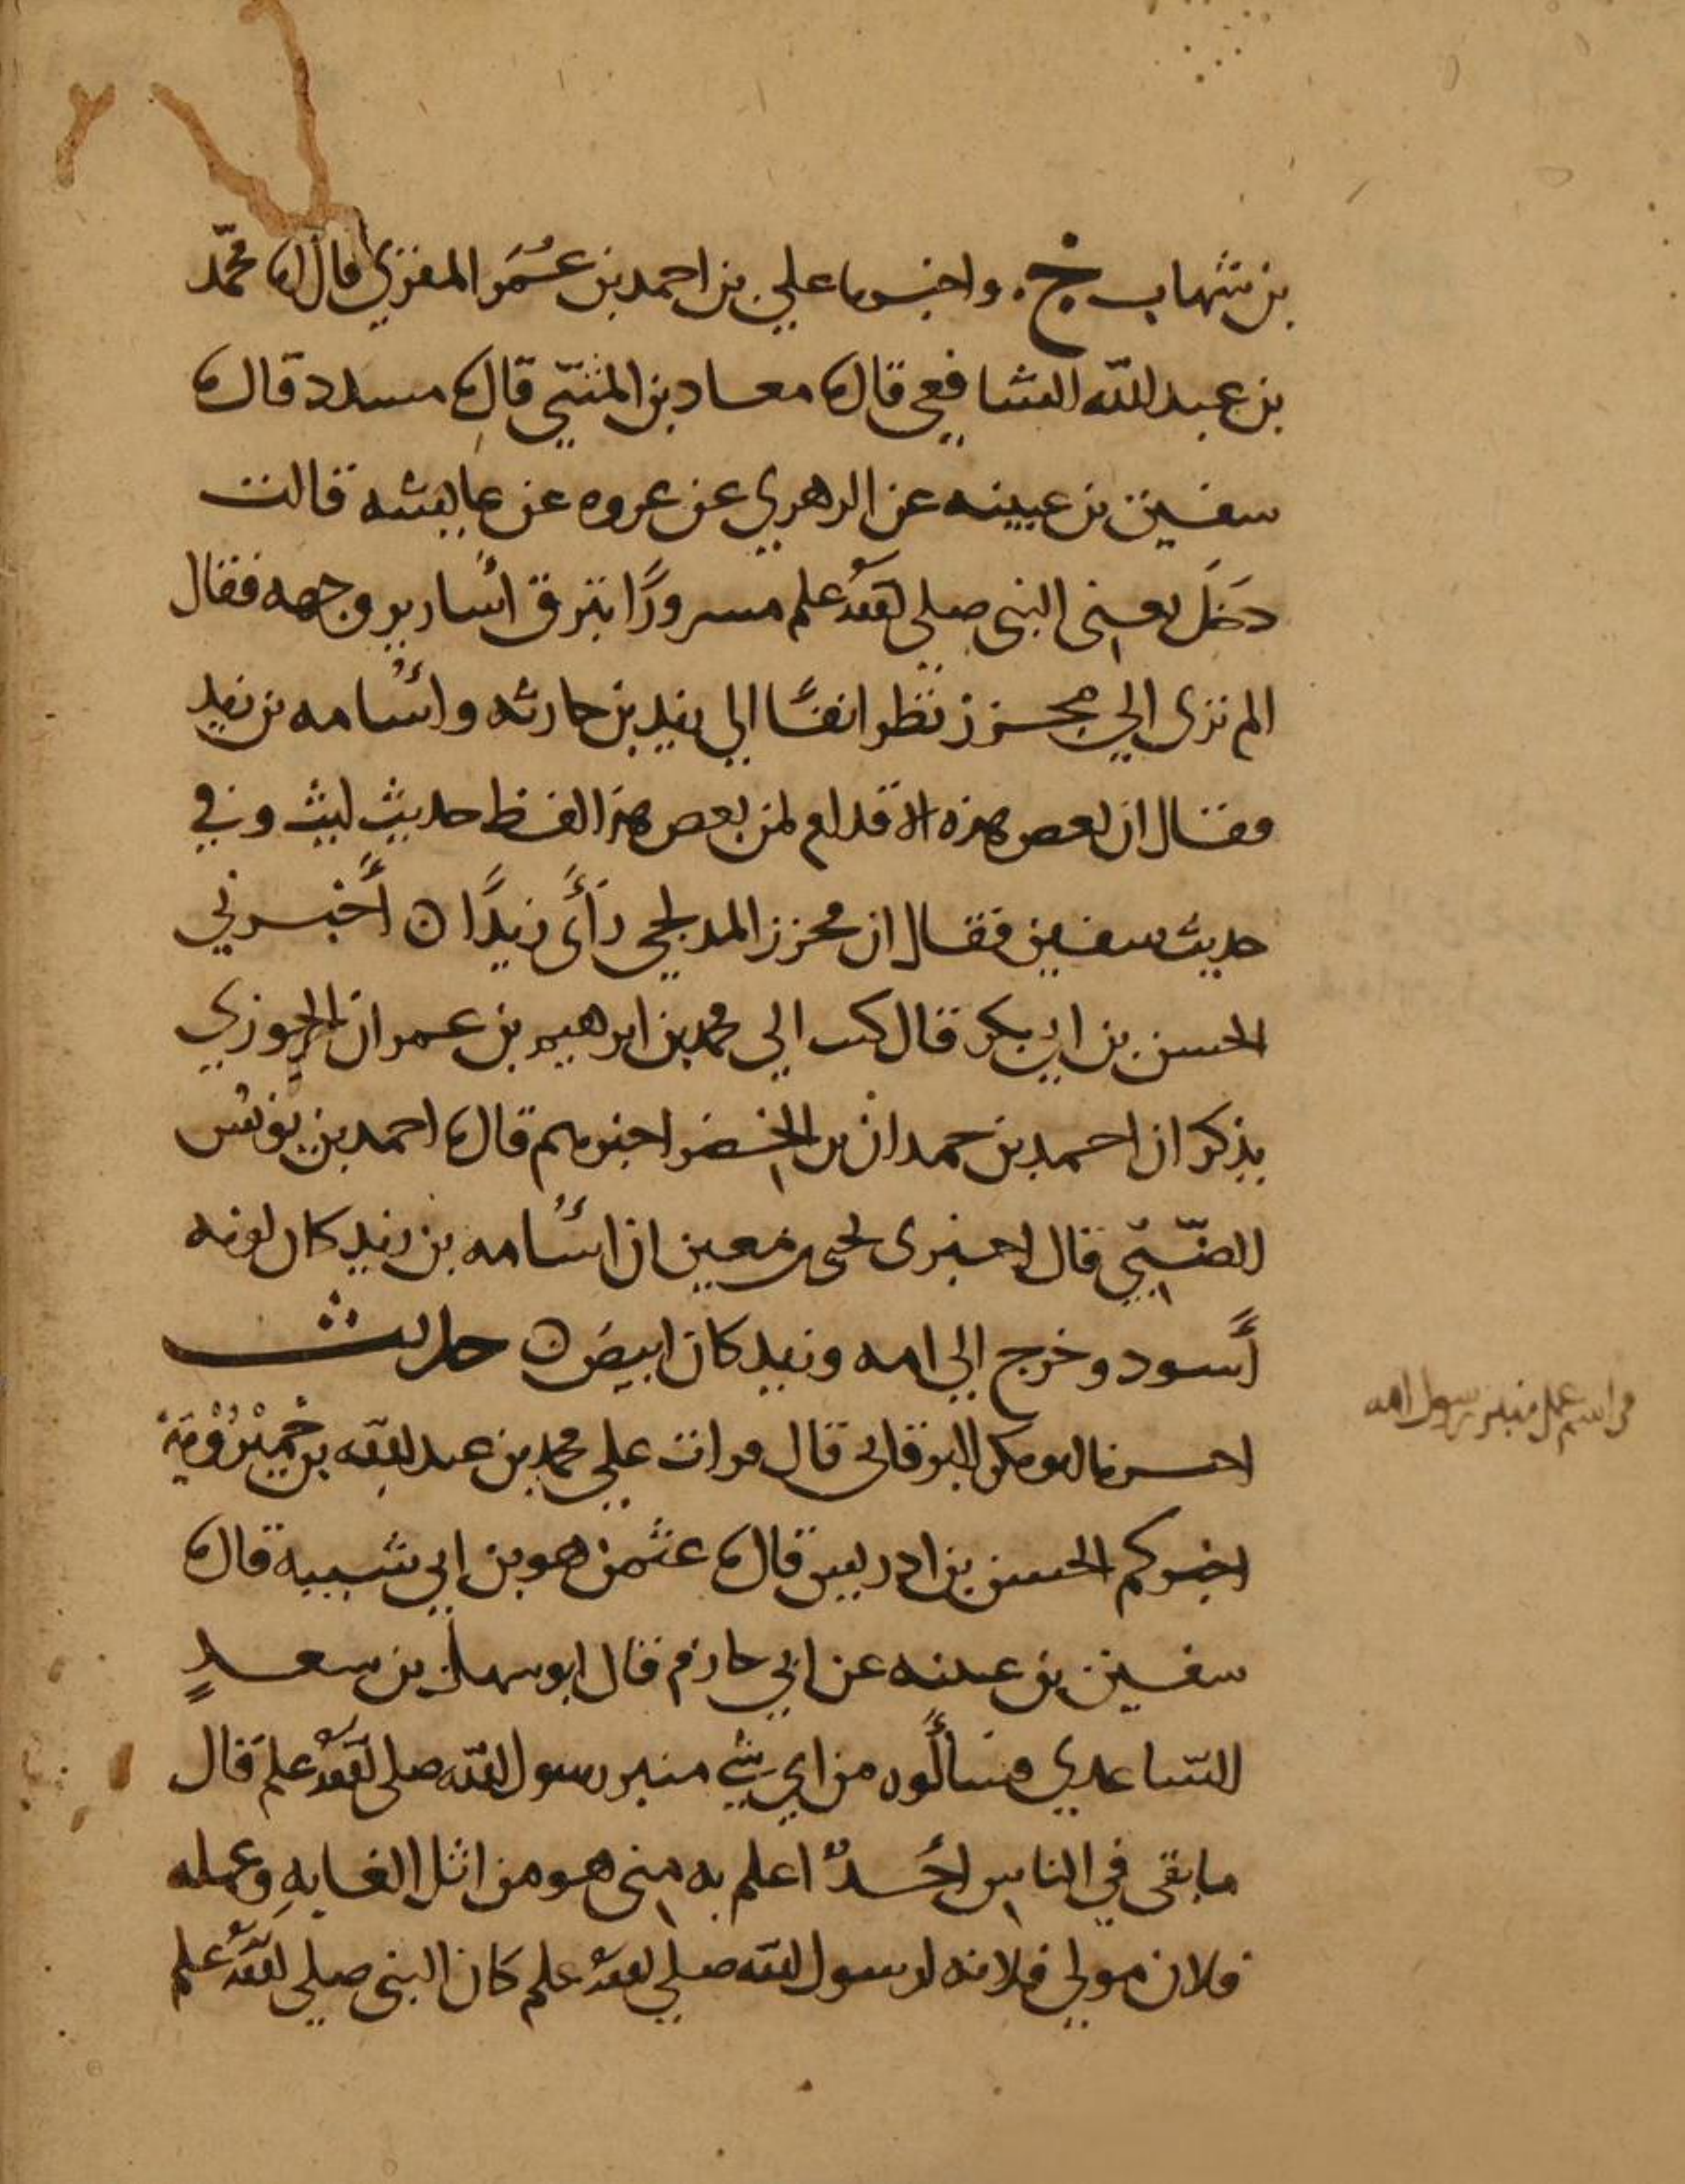 بن شهاب ح. واخبرنا علي بن احمد بن عُمَر المقرئ قال نا محمّد
بن عبد الله الشافعي قال نا معاد بن المثنّي قال نا مسدد قال نا
سفين بن عيينه عن الزهري عن عروه عن عايشه قالت
دخَلَ يعني النبي صلى الله علم مسرورًا تبرق أسارير وجهه فقال
الم تري الي مجزز نظر انفًا الي زيد بن حارثه وأُسامه بن زيد
فقال ان بعض هذه الاقدام لمن بعض هذا لفظ حديث ليث وفي
حديث سفين فقال ان محرز المدلجي رَأَى زيدًا ه أَخبرني
الحسن بن ابي بكر قال كتب الي محمد بن ابرهيم بن عمران الجوزي
يذكر ان احمد بن حمدان بن الخضر اخبرهم قال نا احمد بن يونس
الضّبّي قال اخبرني يحيى بن معين ان أُسامه بن زيد كان لونه
أَسود وخرج الي امه وزيد كان ابيض ه حديث
اخبرنا ابو بكر البرقاني قال قرات علي محمد بن عبد الله بن خَمِيْرُوْيَة
اخبركم الحسين بن ادريس قال نا عثمن هو بن ابي شيبه قال نا
سفين بن عيينه عن ابي حازم قال ابو سهل بن سعدٍ
السّاعدي فسأَلُوه من اي شي منبر رسول الله صلى الله علم قال
ما بقى في الناس احَدٌ اعلم به مني هو من اثل الغابهِ وعمله
فلان مولي فلانه لرسول الله صلي الله علم كان النبي صلي الله علم
من اسم عمل منبر رسول الله